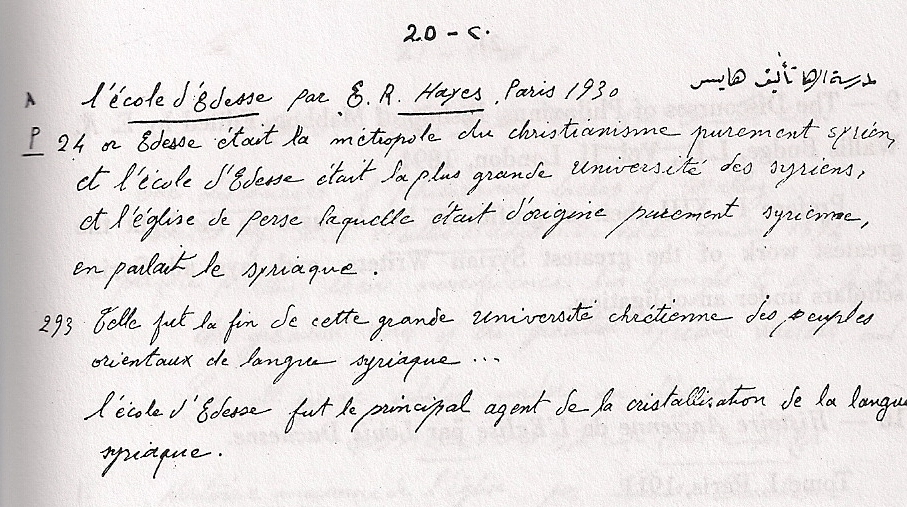 20 - C.
A l'école d'Edesse par E. R. Hayes. Paris 1930 مدرسة الرها تأليف هايس
P 24 or Edesse était la métropole du christianisme purement syrien,
et l'école d'Edesse était la plus grande université des syriens,
et l'église de Perse laquelle était d'origine purement syrienne,
en parlait le syriaque.
293 Telle fut la fin de cette grande université chrétienne des peuples
orientaux de langue syriaque ...
l'école d'Edesse fut le principal agent de la cristallisation de la langue
syriaque.